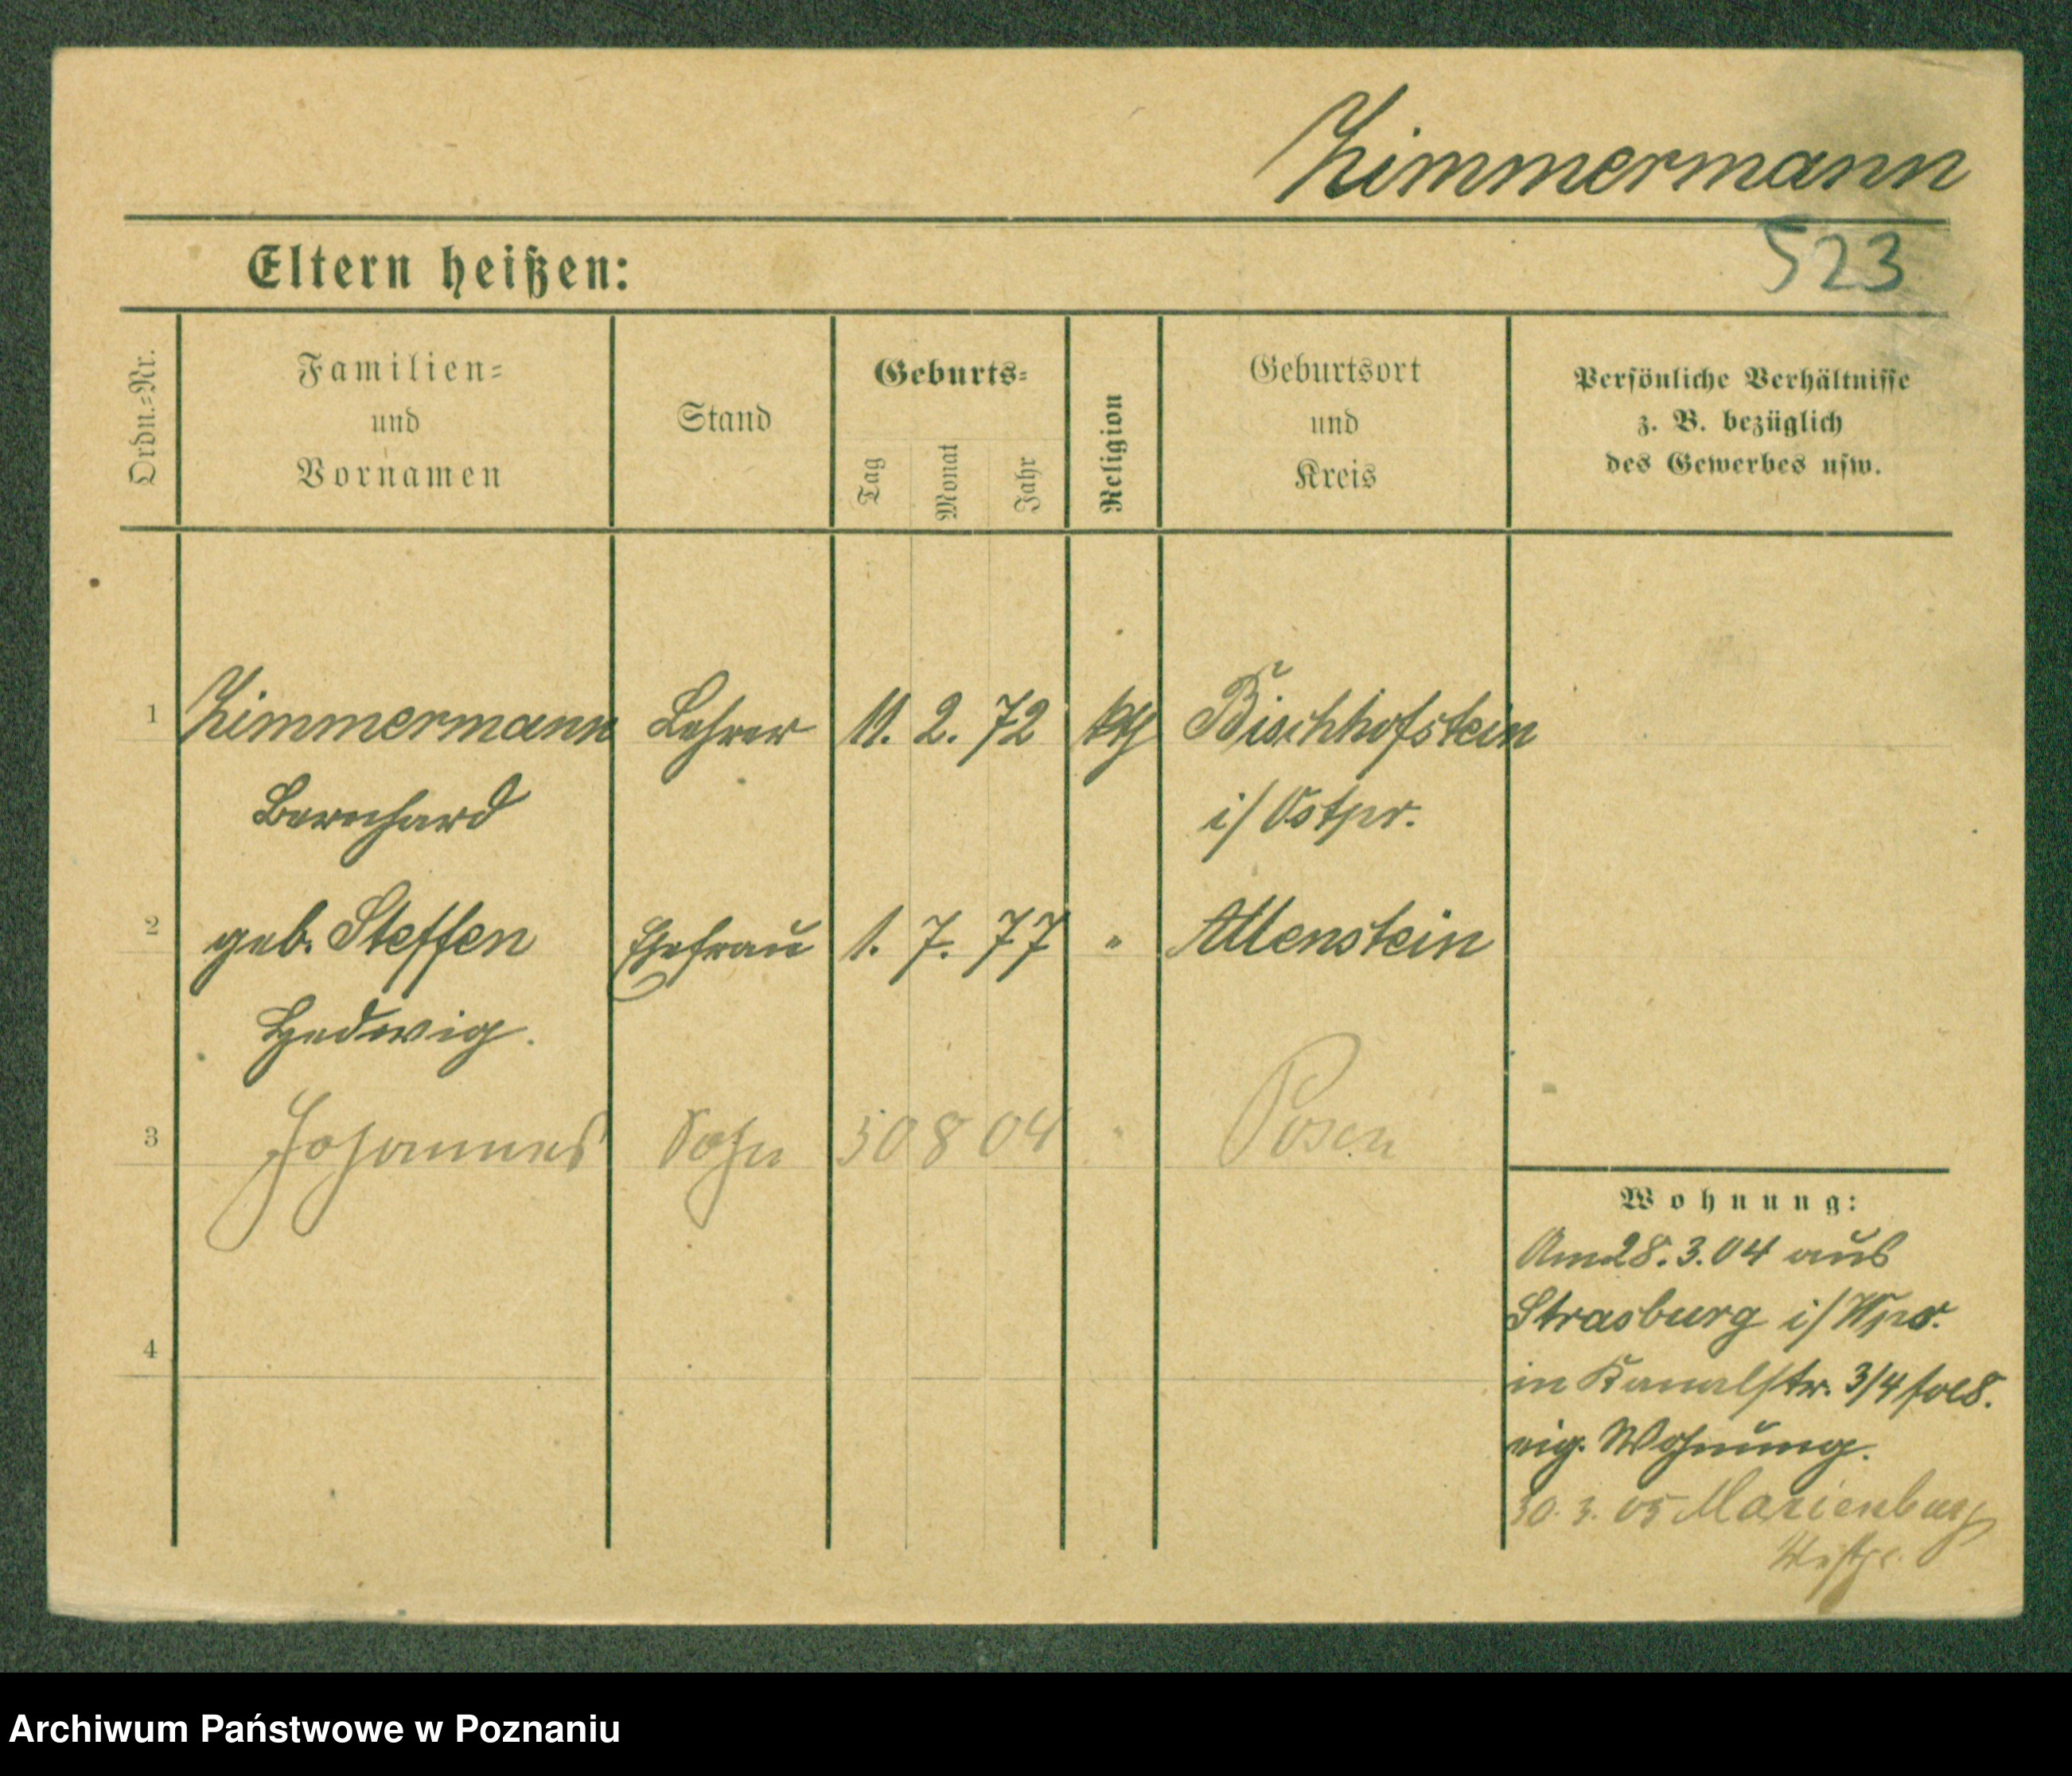 Zimmermann
523
Eltern heißen:
Ordn.=Nr.
Familien=
und
Vornamen
Stand
Geburts=
Tag
Monat
Jahr
Religion
Geburtsort
und
Kreis
Persönliche Verhältnisse
z. B. bezüglich
des Gewerbes usw.
1 Zimmermann Lehrer 11. 2. 72 kth Bischhofstein
Bernhard i/Ostpr.
2 geb. Steffen Ehefrau 1. 7. 77 " Allenstein
Hedwig.
3 Johannes Sohn 30 8 04 " Posen
4
Wohnung:
Am 28. 3. 04 aus
Strasburg i/Wpr.
in Kanalstr. 3/4
eig. Wohnung.
30. 3. 05 Marienburg
Westpr.
Archiwum Państwowe w Poznaniu